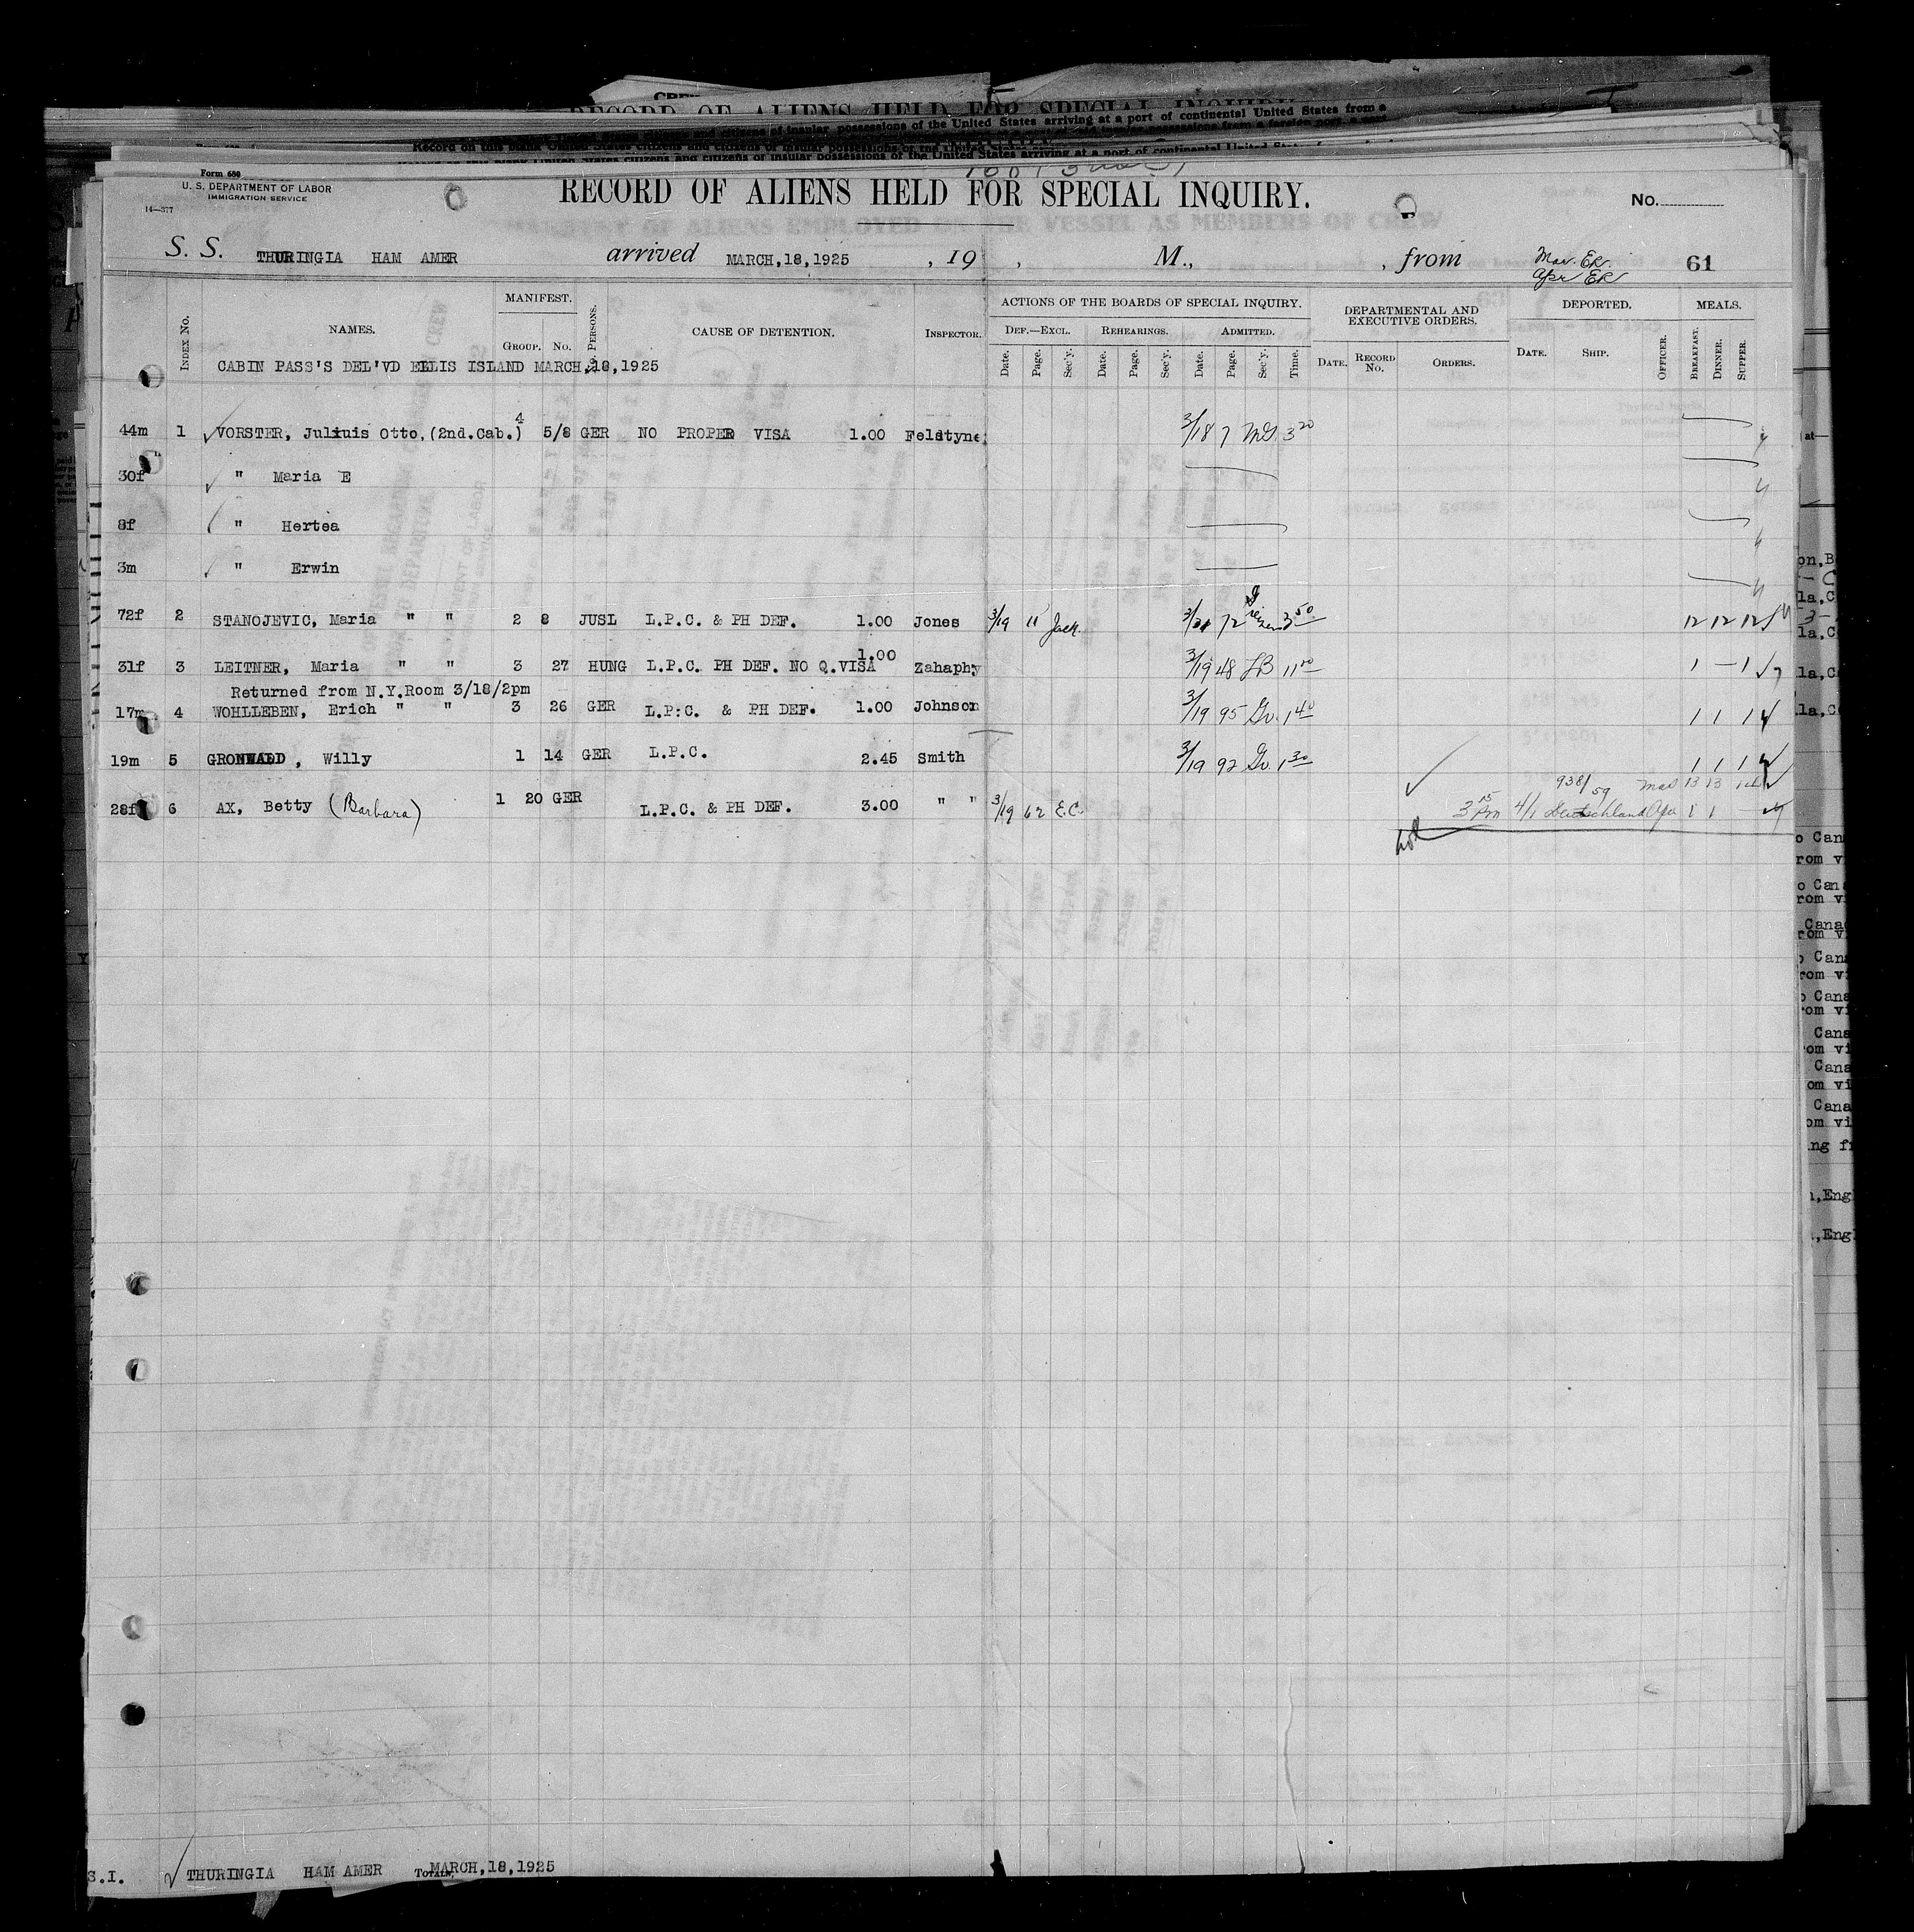 RECORD OF ALIENS HELD FOR SPECIAL INQUIRY
Form 680
U. S. DEPARTMENT OF LABOR
IMMIGRATION SERVICE
14—377
RECORD OF ALIENS HELD FOR SPECIAL INQUIRY.
No.
S. S. THURINGIA HAM AMER arrived MARCH,18,1925 , 19 , M., , from Mar. ER.
Apr ER
61
INDEX No. NAMES. MANIFEST. GROUP. No. No. PERSONS. CAUSE OF DETENTION. INSPECTOR.
ACTIONS OF THE BOARDS OF SPECIAL INQUIRY. DEF.—EXCL. REHEARINGS. ADMITTED.
Date. Page. Sec'y. Date. Page. Sec'y. Date. Page. Sec'y. Time.
DEPARTMENTAL AND EXECUTIVE ORDERS. DATE. RECORD No. ORDERS.
DEPORTED. DATE. SHIP. OFFICER. MEALS. BREAKFAST. DINNER. SUPPER.
CABIN PASS'S DEL'VD ELLIS ISLAND MARCH,18,1925
44m 1 VORSTER, Juliuis Otto,(2nd.Cab.) 4 5/8 GER NO PROPER VISA 1.00 Feldtyne 3/18 7 3 20
30f " Maria E
8f " Hertea
3m " Erwin
72f 2 STANOJEVIC, Maria " " 2 8 JUSL L.P.C. & PH DEF. 1.00 Jones 3/19 11 Jack. 72 3 50 12 12 12
31f 3 LEITNER, Maria " " 3 27 HUNG L.P.C. PH DEF. NO Q.VISA 1.00 Zahaphy 3/19 48 LB 11 00 1 — 1
Returned from N.Y.Room 3/18/2pm
17m 4 WOHLLEBEN, Erich " " 3 26 GER L.P.C. & PH DEF. 1.00 Johnson 3/19 95 Gv. 1 40 1 1 1
19m 5 GRONWALD, Willy 1 14 GER L.P.C. 2.45 Smith 3/19 92 Gv. 1 30 1 1 1
938/59 Mar 13 13
28f 6 AX, Betty (Barbara) 1 20 GER L.P.C. & PH DEF. 3.00 " " 3/19 62 E.C. 3 15 Pm 4/1 Deutschland Apr 1 1 —
S.I. THURINGIA HAM AMER TOTALS, MARCH,18,1925